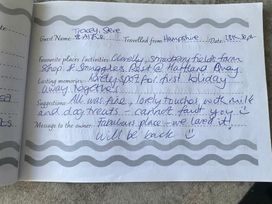 Tracey, Steve
Guest Name Travelled from Hampshire Date
Favourite places / activities: Clovelly, strawberry fields farm
shop & Smugglers Rest @ Hartland Quay
Lasting memories: lovely spot for first holiday
away together
Suggestions: All was fine, lovely touches with milk
and dog treats - cannot fault you ☺
Message to the owner: fabulous place - we loved it!
Will be back ☺